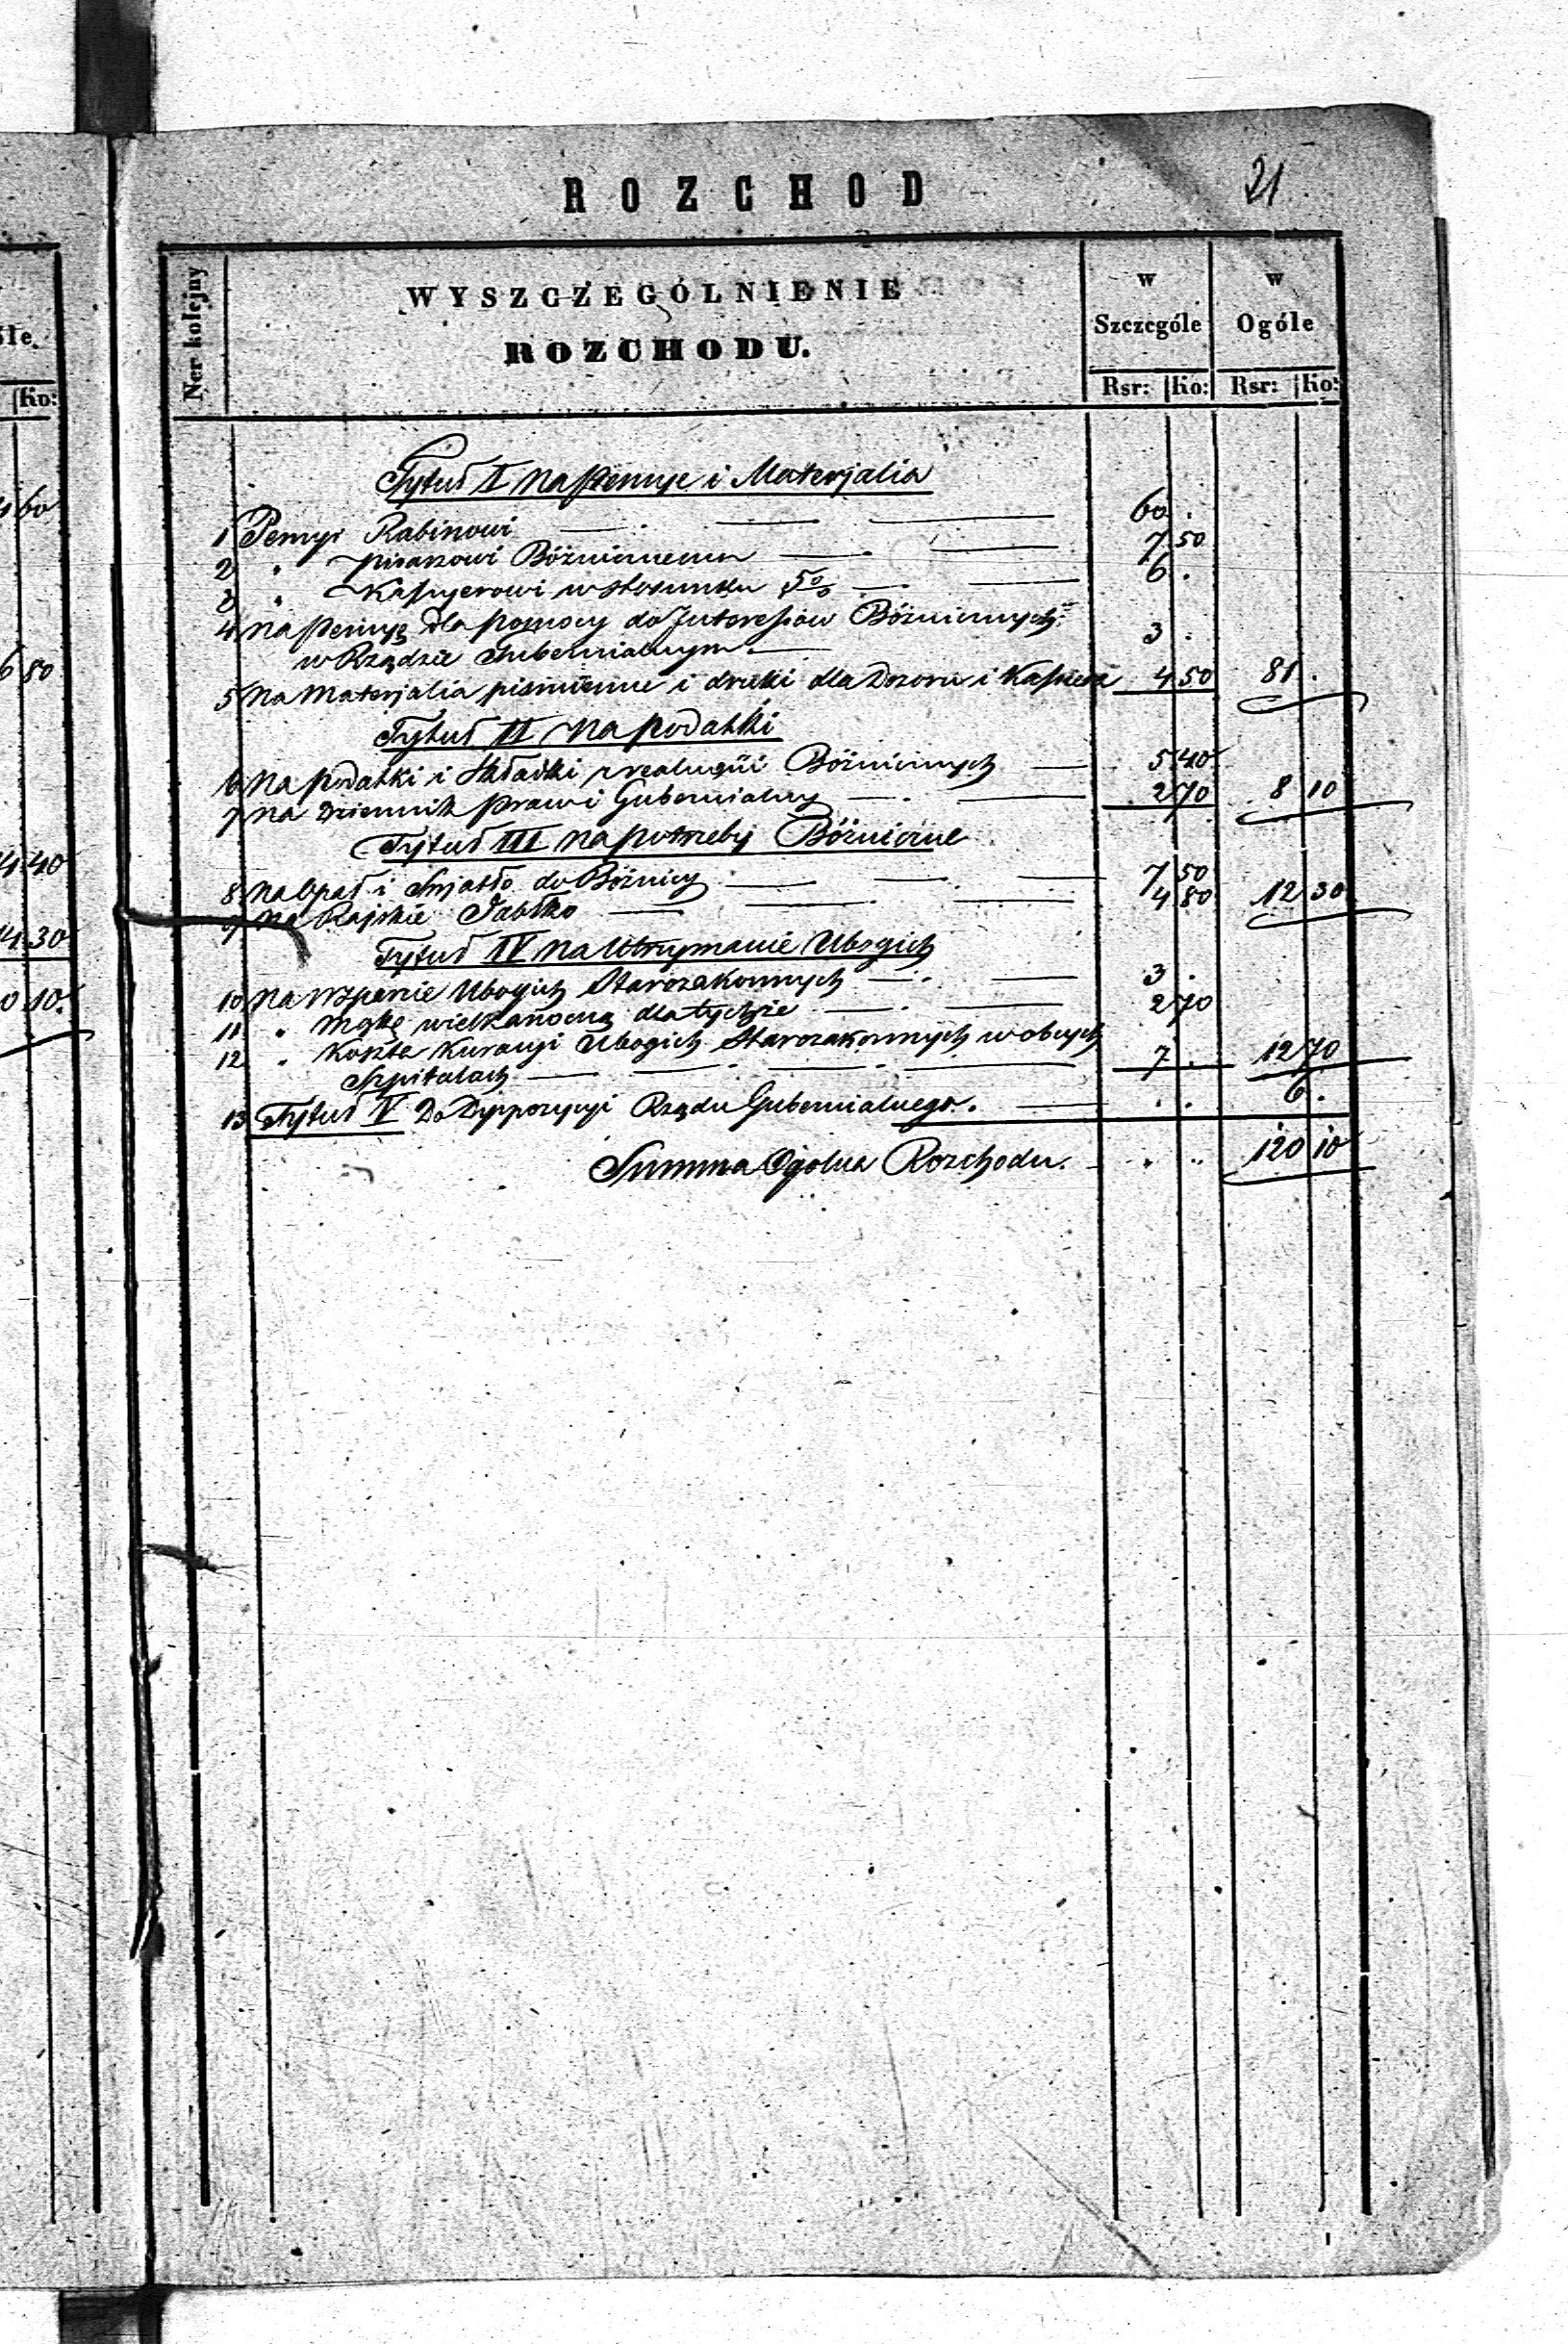 ROZCHOD
21
Ner kolejny
WYSZCZEGÓLNIENIE
ROZCHODU.
w Szczególe
w Ogóle
Rsr: Ko: Rsr: Ko:
óle.
Ko:
Tytuł I na pensye i Materjalia
1 Pensyi Rabinowi 60 .
2 " pisarzowi Bóżnicznemu 7 50
3 " Kassyerowi w stosunku 5% 6 .
4 na pensyę dla pomocy do Interessów Bóżnicznych
w Rządzie Gubernialnym 3 .
5 na Materjalia piśmienne i druki dla Dozoru i Kassiera 4 50 81 .
Tytuł II na podatki
6 na podatki i składki z realności Bóżnicznych 5 40
7 na Dziennik praw i Gubernialny 2 70 8 10
Tytuł III na potrzeby Bóżniczne
8 na Opał i Światło do Bóżnicy 7 50
9 na Rajskie Jabłko 4 80 12 30
Tytuł IV na Utrzymanie Ubogich
10 na wsparcie Ubogich Starozakonnych 3 .
11 " mąkę wielkanocną dla tychże 2 70
12 " koszta kuracyi Ubogich Starozakonnych w obcych
Szpitalach 7 . 12 70
13 Tytuł V Do Dyspozycyi Rządu Gubernialnego . . 6 .
Summa Ogólna Rozchodu . .. 120 10
60
6 80
4 40
4 30
0 10.